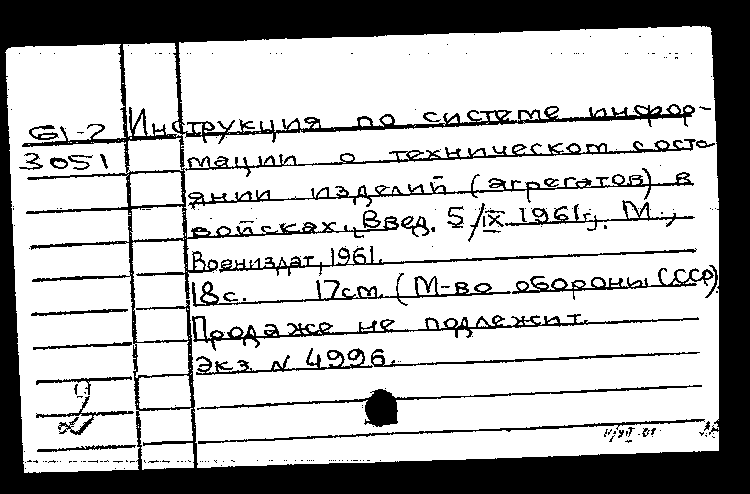 61-7 Инструкция по системе инфор-
3051 мации о техническом состо-
янии изделий (агрегатов) в
войсках. [Введ. 5/IX 1961г.]. М.,
Воениздат, 1961.
18с. 17см. (М-во обороны СССР)
Продаже не подлежит.
Экз. N 4996.
2